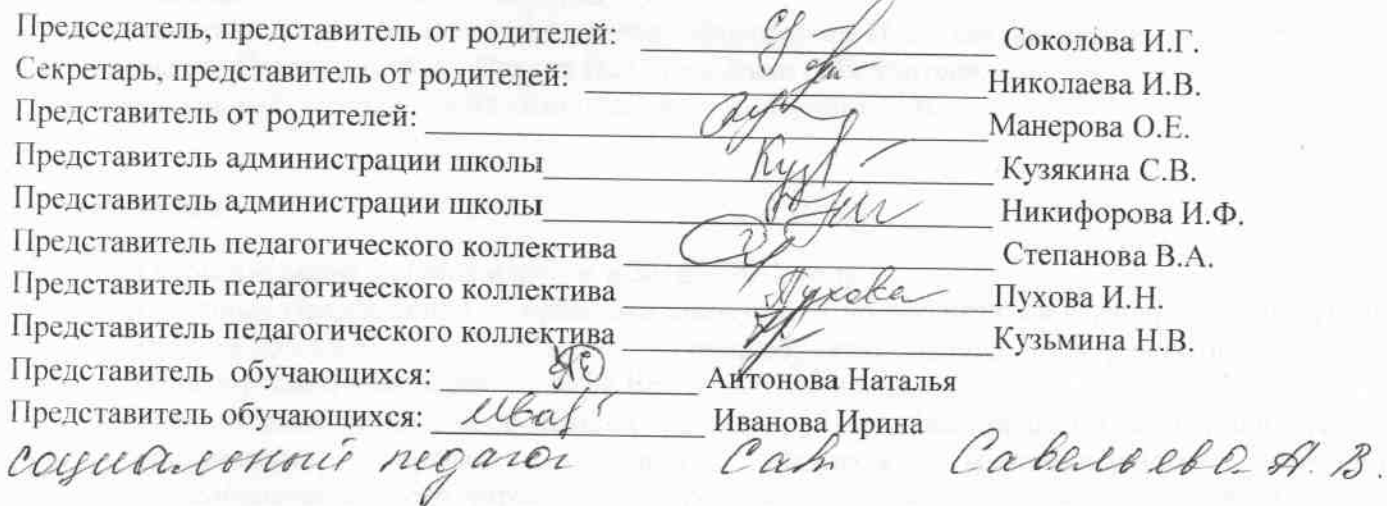 Председатель, представитель от родителей: Соколова И.Г.
Секретарь, представитель от родителей: Николаева И.В.
Представитель от родителей: Манерова О.Е.
Представитель администрации школы Кузякина С.В.
Представитель администрации школы Никифорова И.Ф.
Представитель педагогического коллектива Степанова В.А.
Представитель педагогического коллектива Пухова Пухова И.Н.
Представитель педагогического коллектива Кузьмина Н.В.
Представитель обучающихся: Антонова Наталья
Представитель обучающихся: Иванова Ирина
социальный педагог Сав Савельева А. В.